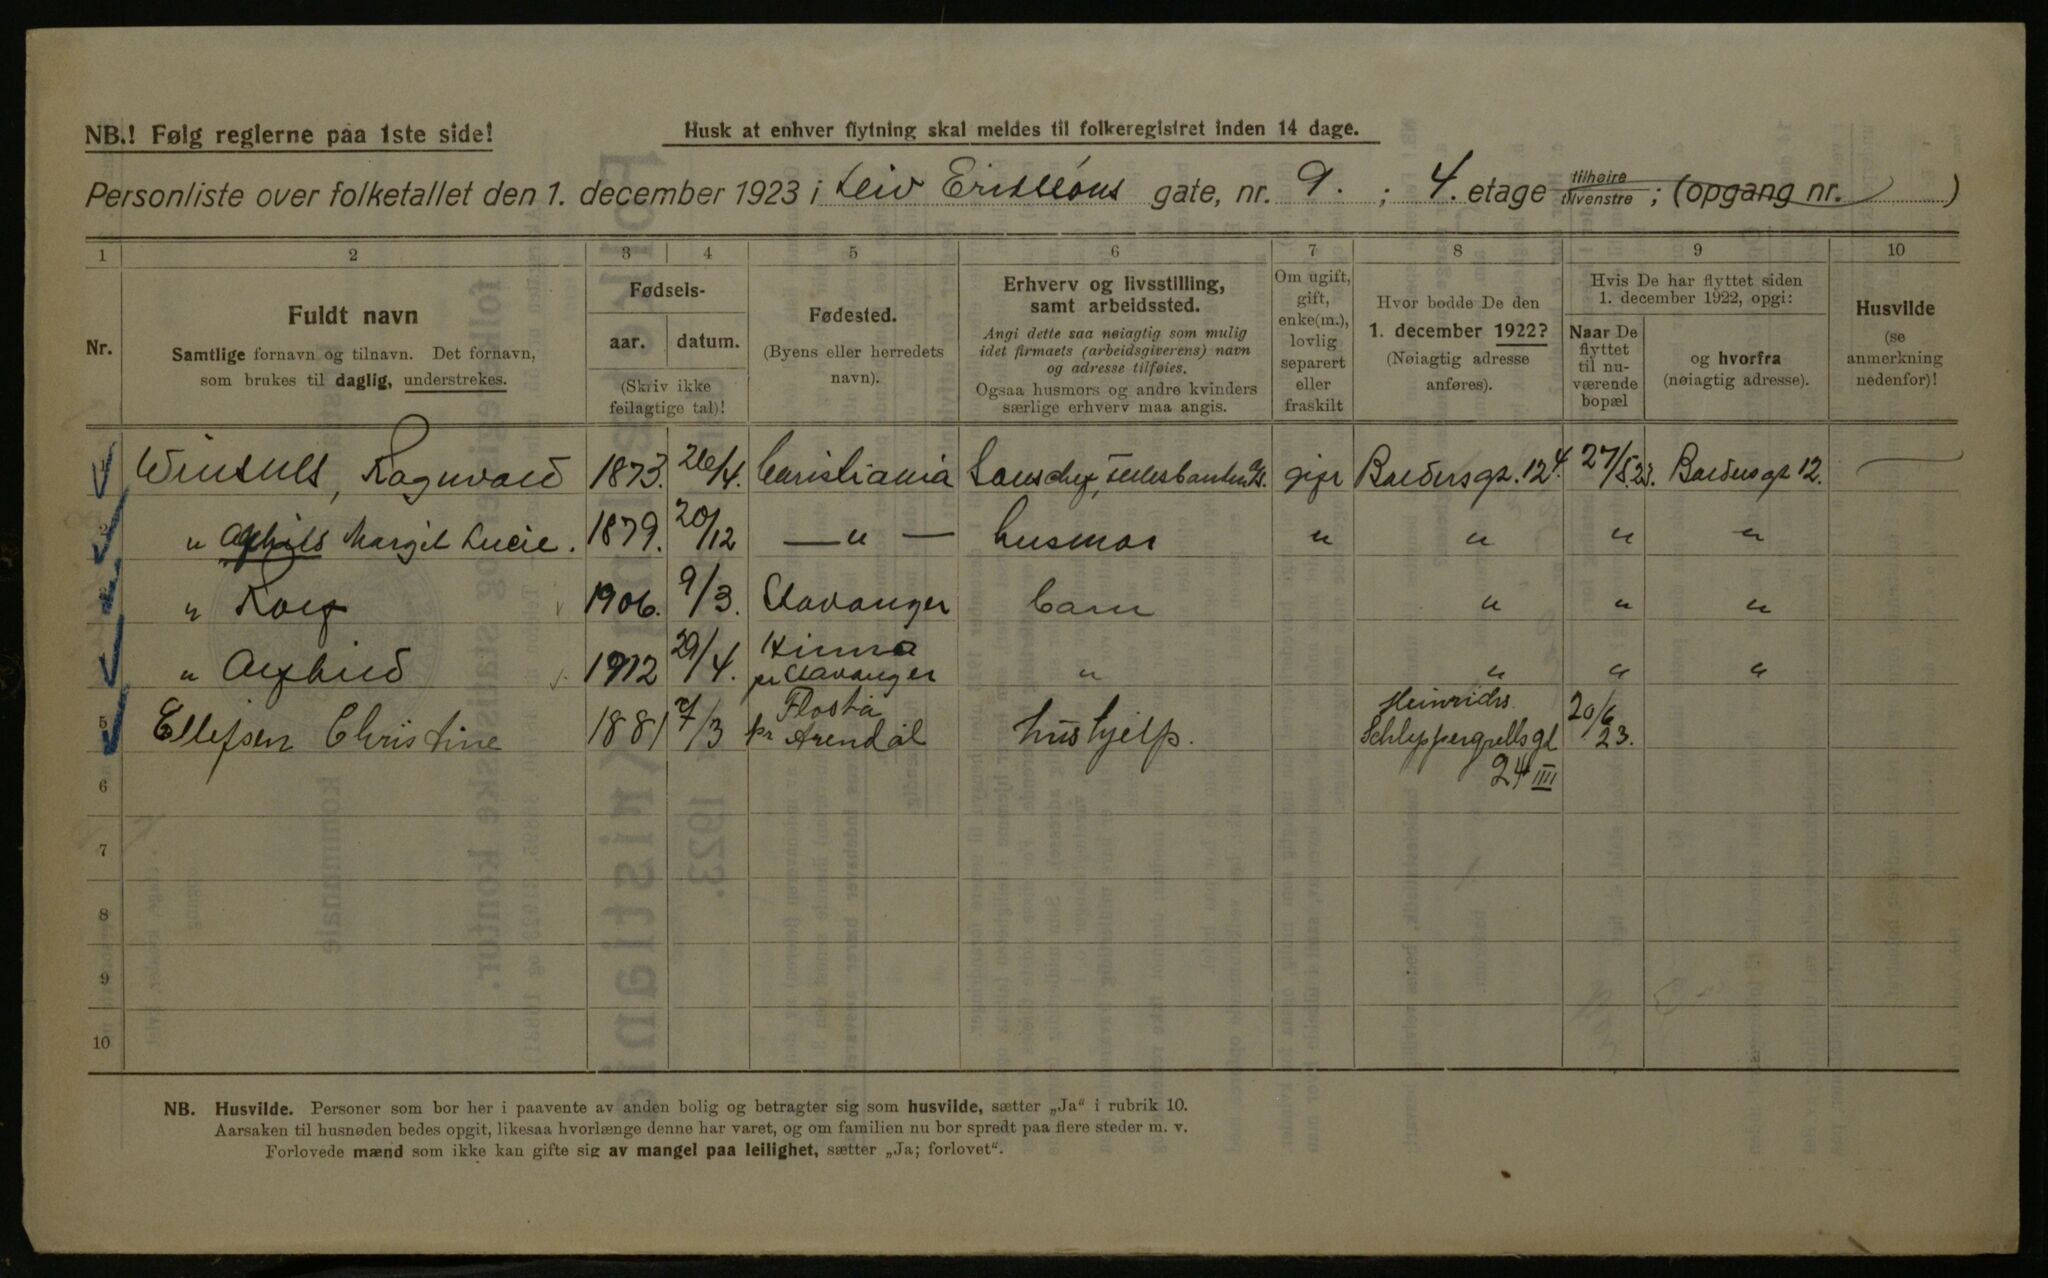 NB.! Følg reglerne paa 1ste side!
Husk at enhver flytning skal meldes til folkeregistret inden 14 dage.
Personliste over folketallet den 1. december 1923 i Leiv Erikssons gate, nr. 9. ; 4. etage tilhøire tilvenstre ; (opgang nr. )
1 2 3 4 5 6 7 8 9 10
Nr.
Fuldt navn
Samtlige fornavn og tilnavn. Det fornavn,
som brukes til daglig, understrekes.
Fødsels-
aar. datum.
(Skriv ikke
feilagtige tal)!
Fødested.
(Byens eller herredets
navn).
Erhverv og livsstilling,
samt arbeidssted.
Angi dette saa nøiagtig som mulig
idet firmaets (arbeidsgiverens) navn
og adresse tilføies.
Ogsaa husmors og andre kvinders
særlige erhverv maa angis.
Om ugift,
gift,
enke(m.),
lovlig
separert
eller
fraskilt
Hvor bodde De den
1. december 1922?
(Nøiagtig adresse
anføres).
Hvis De har flyttet siden
1. december 1922, opgi:
Naar De
flyttet
til nu-
værende
bopæl
og hvorfra
(nøiagtig adresse).
Husvilde
(se
anmerkning
nedenfor)!
Ragnvald 1873. 26/4. Christiania gift Baldersgt. 12 4. 27/5.23. Baldersgt 12. —
" Margit Lucie. 1879. 20/12 — " — husmor " " " "
" Rolf 1906. 9/3. Stavanger barn " " "
" Alfhild 1912 29/4. Hinna pr Stavanger " " " "
5 Ellefsen Christine 1881 7/3 Flosta pr Arendal hushjelp. Heinrichs Schleppergrellsgt 24 IIII 20/6 23.
6
7
8
9
10
NB. Husvilde. Personer som bor her i paavente av anden bolig og betragter sig som husvilde, sætter „Ja“ i rubrik 10.
Aarsaken til husnøden bedes opgit, likesaa hvorlænge denne har varet, og om familien nu bor spredt paa flere steder m. v.
Forlovede mænd som ikke kan gifte sig av mangel paa leilighet, sætter „Ja; forlovet“.